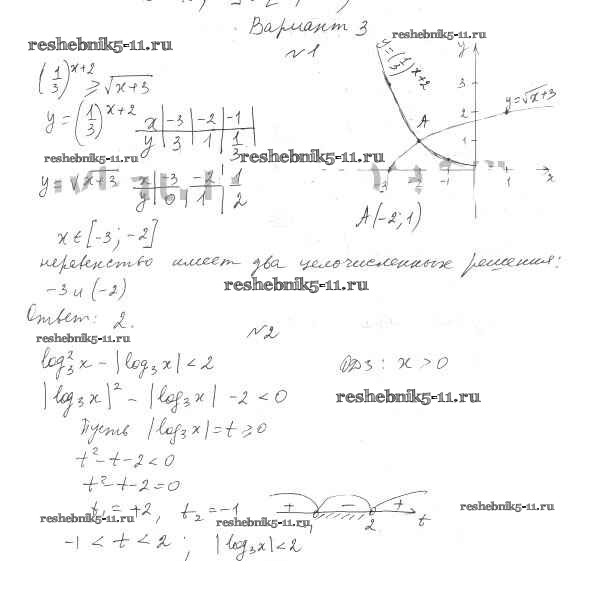 Вариант 3
reshebnik5-11.ru
reshebnik5-11.ru
№1
(1/3)^(x+2) ≥ √(x+3)
y=(1/3)^(x+2)
x | -3 | -2 | -1
y | 3 | 1 | 1/3
reshebnik5-11.ru
y=√(x+3)
x | -3 | -2 | 1
y | 0 | 1 | 2
y=(1/3)^(x+2)
y
3
2
y=√(x+3)
A
1
-3 -2 -1 1 x
A(-2; 1)
x ∈ [-3; -2]
неравенство имеет два целочисленных решения:
-3 и (-2)
reshebnik5-11.ru
Ответ: 2.
reshebnik5-11.ru
№2
log₃²x - |log₃x| < 2
ОДЗ: x > 0
|log₃x|² - |log₃x| - 2 < 0
reshebnik5-11.ru
Пусть |log₃x| = t ≥ 0
t² - t - 2 < 0
t² - t - 2 = 0
t₁ = +2, t₂ = -1
+ - +
-1 2 t
reshebnik5-11.ru
reshebnik5-11.ru
reshebnik5-11.ru
-1 < t < 2; |log₃x| < 2